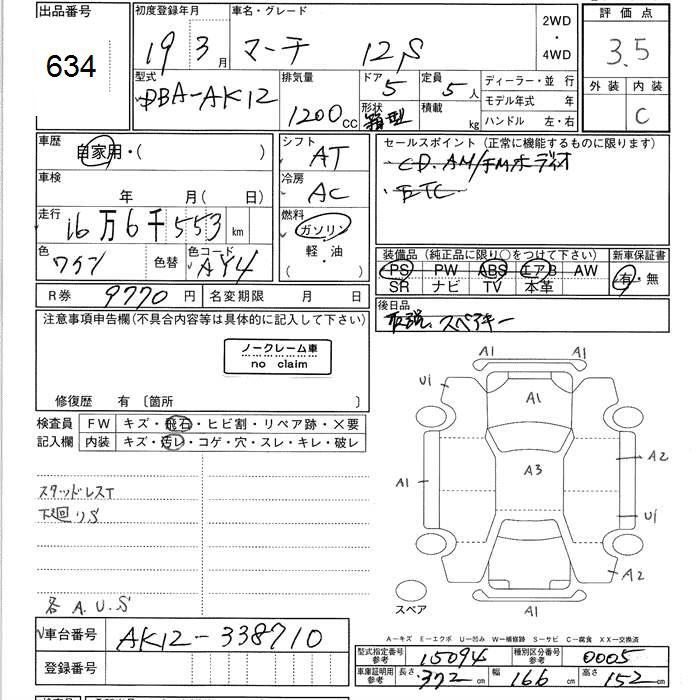 出品番号
634
初度登録年月
19 3月
車名・グレード
マーチ 12S
2WD
・
4WD
評価点
3.5
外装 内装
C
型式
DBA-AK12
排気量
1200cc
ドア
5
形状
箱型
定員
5人
積載
kg
ディーラー・並 行
モデル年式 年
ハンドル 左・右
車歴
自家用・( )
車検
年 月( 日)
走行
16万6千553km
色
ワイン
色替
色コード
AY4
シフト
AT
冷房
AC
燃料
ガソリン
軽・油
( )
セールスポイント(正常に機能するものに限ります)
CD.AM/FMラディオ
ETC
装備品(純正品に限り○をつけて下さい)
PS PW ABS エアB AW
SR ナビ TV 本革
新車保証書
有・無
R券 9770円
名変期限 月 日
後日品
取説、スペアキー
注意事項申告欄(不具合内容等は具体的に記入して下さい)
ノークレーム車
no claim
修復歴 有〔箇所
検査員
記入欄
FW キズ・飛石・ヒビ割・リペア跡・×要
内装 キズ・汚レ・コゲ・穴・スレ・キレ・破レ
スタッドレスT
下廻りS
各A.U.S
A1
A1
U1
A1
A3
A2
U1
A2
A1
スペア
A1
A-キズ E-エクボ U-凹み W-補修跡 S-サビ C-腐食 XX-交換済
車台番号 AK12-338710
登録番号
型式指定番号
参考
15094
種別区分番号
参考
0005
車庫証明用
参考
長さ 372cm
幅 166cm
高さ 152cm